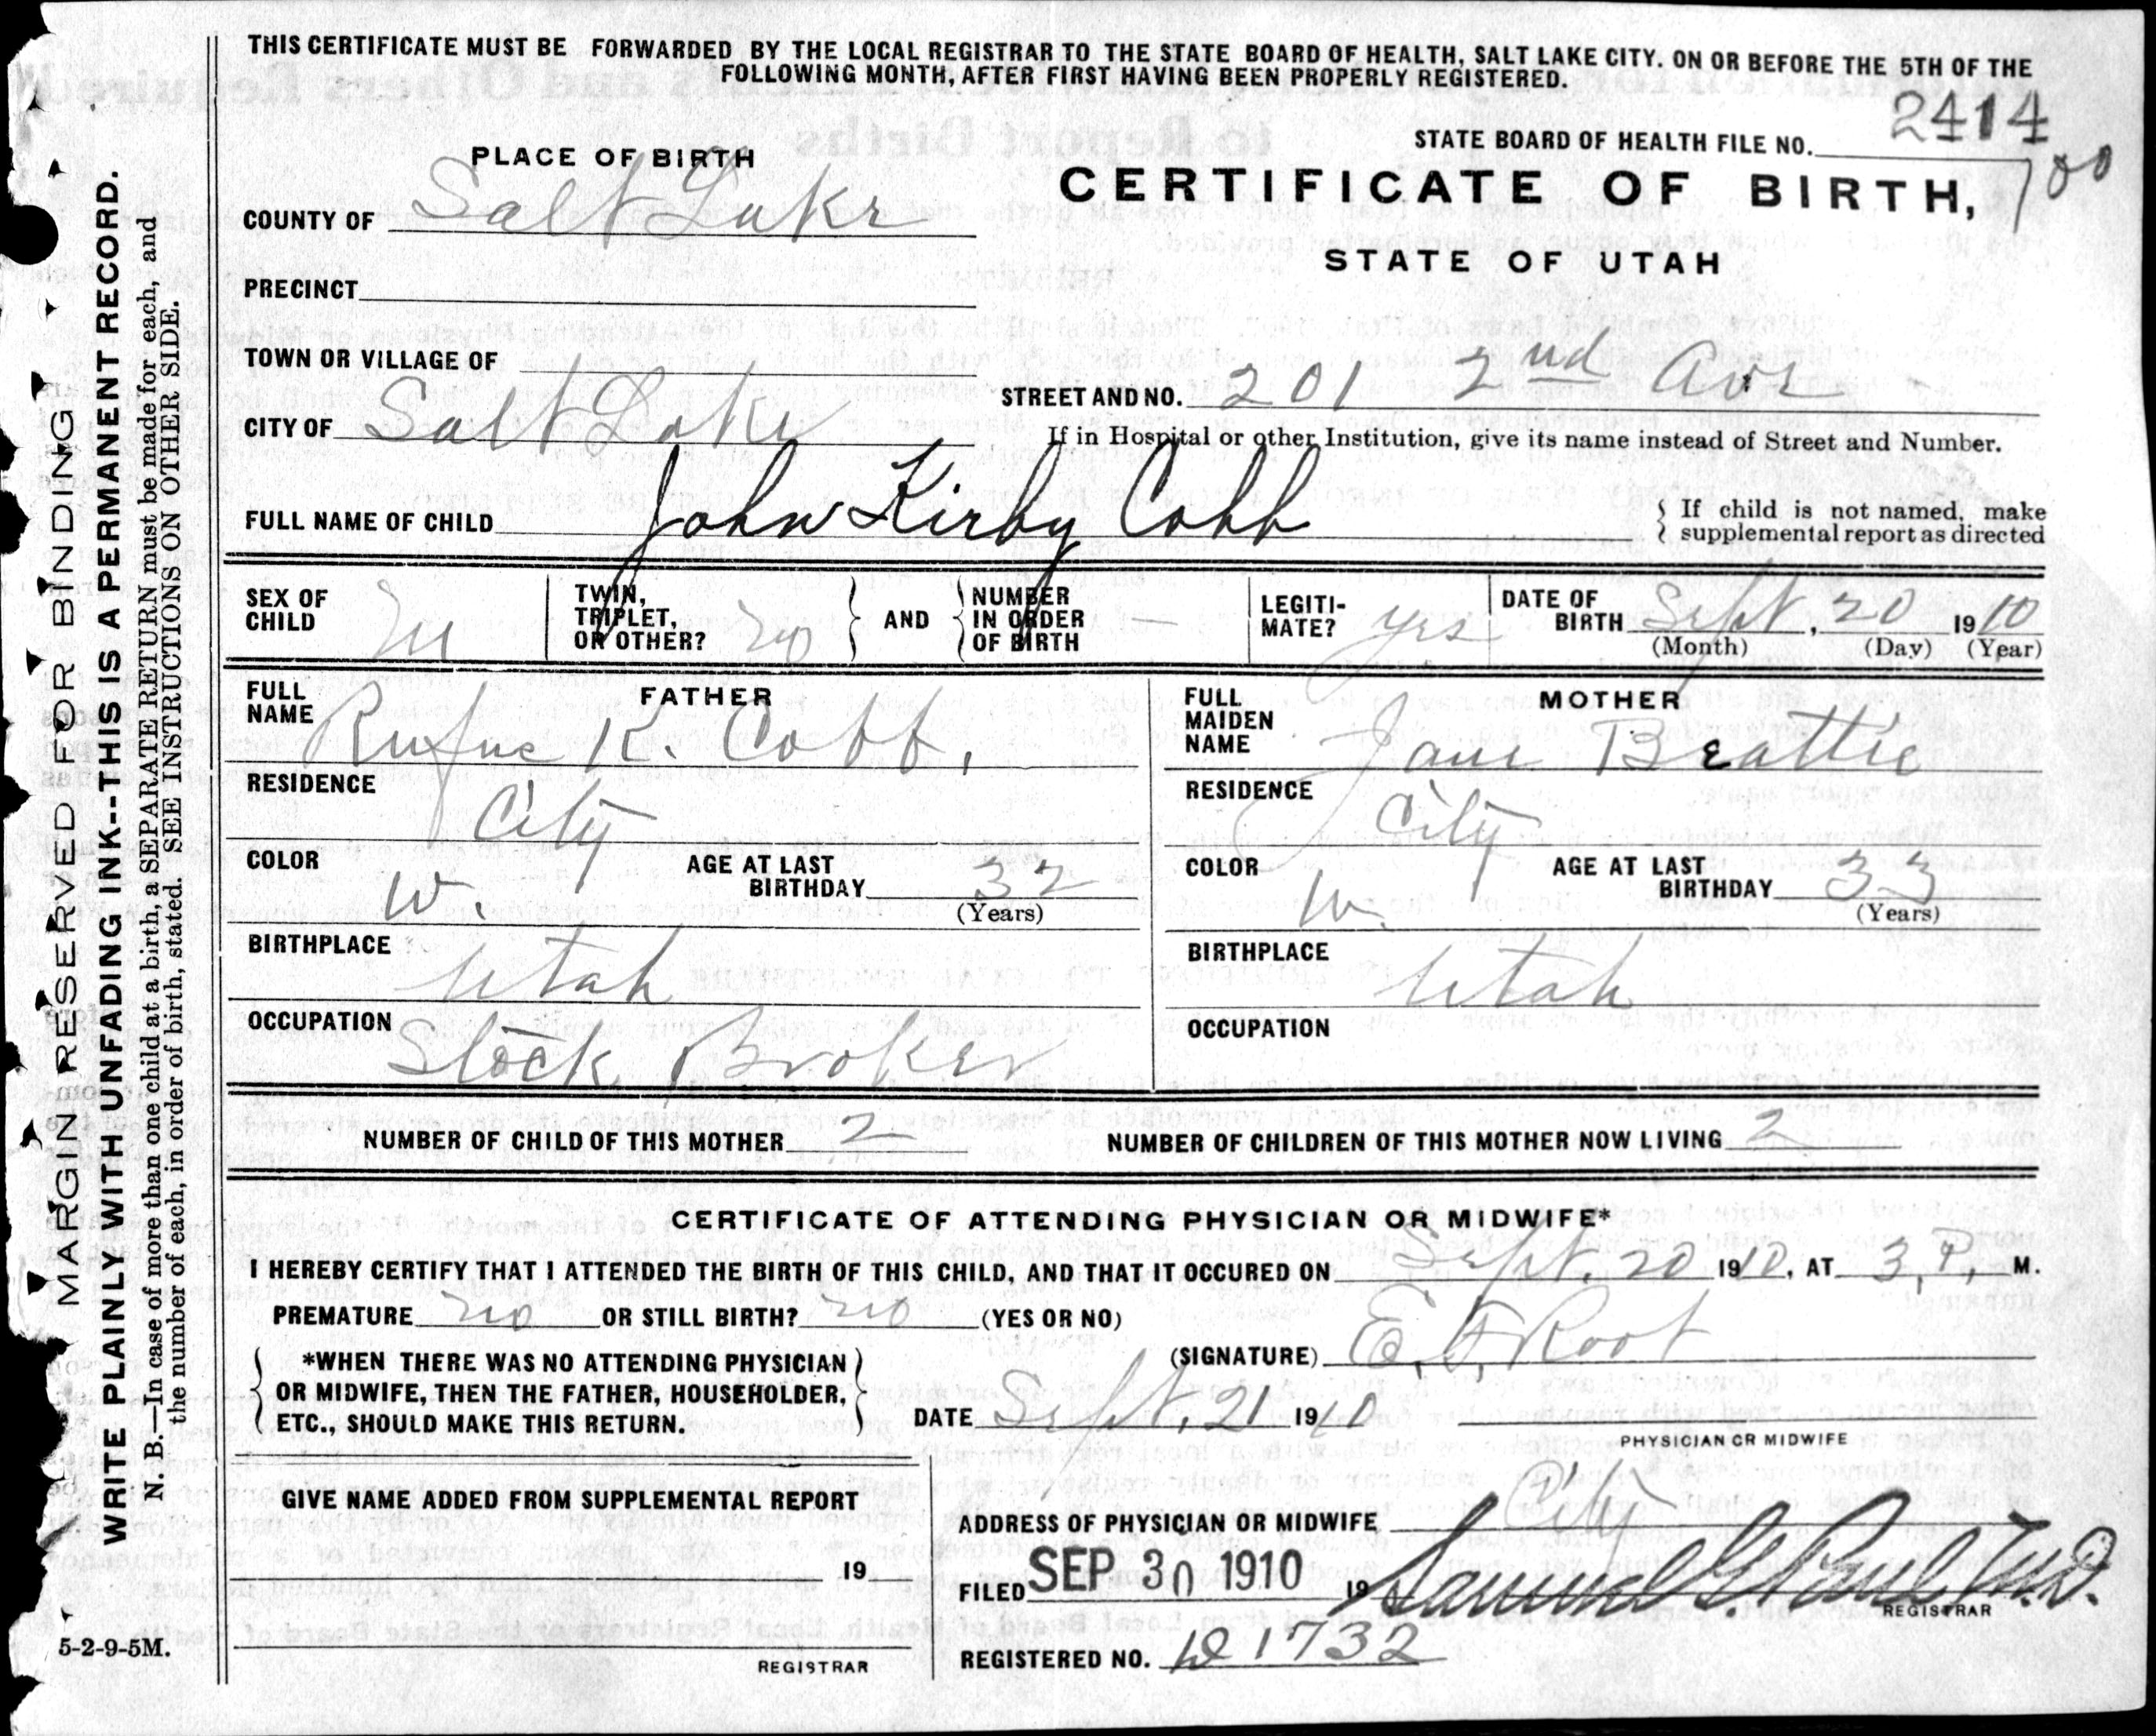 THIS CERTIFICATE MUST BE FORWARDED BY THE LOCAL REGISTRAR TO THE STATE BOARD OF HEALTH, SALT LAKE CITY. ON OR BEFORE THE 5TH OF THE
FOLLOWING MONTH, AFTER FIRST HAVING BEEN PROPERLY REGISTERED.
STATE BOARD OF HEALTH FILE NO. 2414
700
CERTIFICATE OF BIRTH,
STATE OF UTAH
PLACE OF BIRTH
COUNTY OF Salt Lake
PRECINCT
TOWN OR VILLAGE OF
CITY OF Salt Lake
STREET AND NO. 201 2nd Ave
If in Hospital or other Institution, give its name instead of Street and Number.
FULL NAME OF CHILD John Kirby Cobb
If child is not named, make
supplemental report as directed
SEX OF CHILD M
TWIN, TRIPLET, OR OTHER? no
AND
NUMBER IN ORDER OF BIRTH —
LEGITI-MATE? yes
DATE OF BIRTH Sept. 20 1910
(Month) (Day) (Year)
FATHER
FULL NAME Rufus K. Cobb,
RESIDENCE City
COLOR W.
AGE AT LAST BIRTHDAY 32
(Years)
BIRTHPLACE Utah
OCCUPATION Stock Broker
MOTHER
FULL MAIDEN NAME Jane Beattie
RESIDENCE City
COLOR W.
AGE AT LAST BIRTHDAY 33
(Years)
BIRTHPLACE Utah
OCCUPATION
NUMBER OF CHILD OF THIS MOTHER 2
NUMBER OF CHILDREN OF THIS MOTHER NOW LIVING 2
CERTIFICATE OF ATTENDING PHYSICIAN OR MIDWIFE*
I HEREBY CERTIFY THAT I ATTENDED THE BIRTH OF THIS CHILD, AND THAT IT OCCURED ON Sept. 20 1910, AT 3, P, M.
PREMATURE no OR STILL BIRTH? no (YES OR NO)
*WHEN THERE WAS NO ATTENDING PHYSICIAN
OR MIDWIFE, THEN THE FATHER, HOUSEHOLDER,
ETC., SHOULD MAKE THIS RETURN.
(SIGNATURE) E. F. Root
DATE Sept. 21 1910
PHYSICIAN OR MIDWIFE
GIVE NAME ADDED FROM SUPPLEMENTAL REPORT
19
REGISTRAR
ADDRESS OF PHYSICIAN OR MIDWIFE City
FILED SEP 30 1910 19 Samuel G. Paul M.D.
REGISTRAR
REGISTERED NO. 1732
MARGIN RESERVED FOR BINDING
WRITE PLAINLY WITH UNFADING INK--THIS IS A PERMANENT RECORD.
N. B.—In case of more than one child at a birth, a SEPARATE RETURN must be made for each, and
the number of each, in order of birth, stated. SEE INSTRUCTIONS ON OTHER SIDE.
5-2-9-5M.